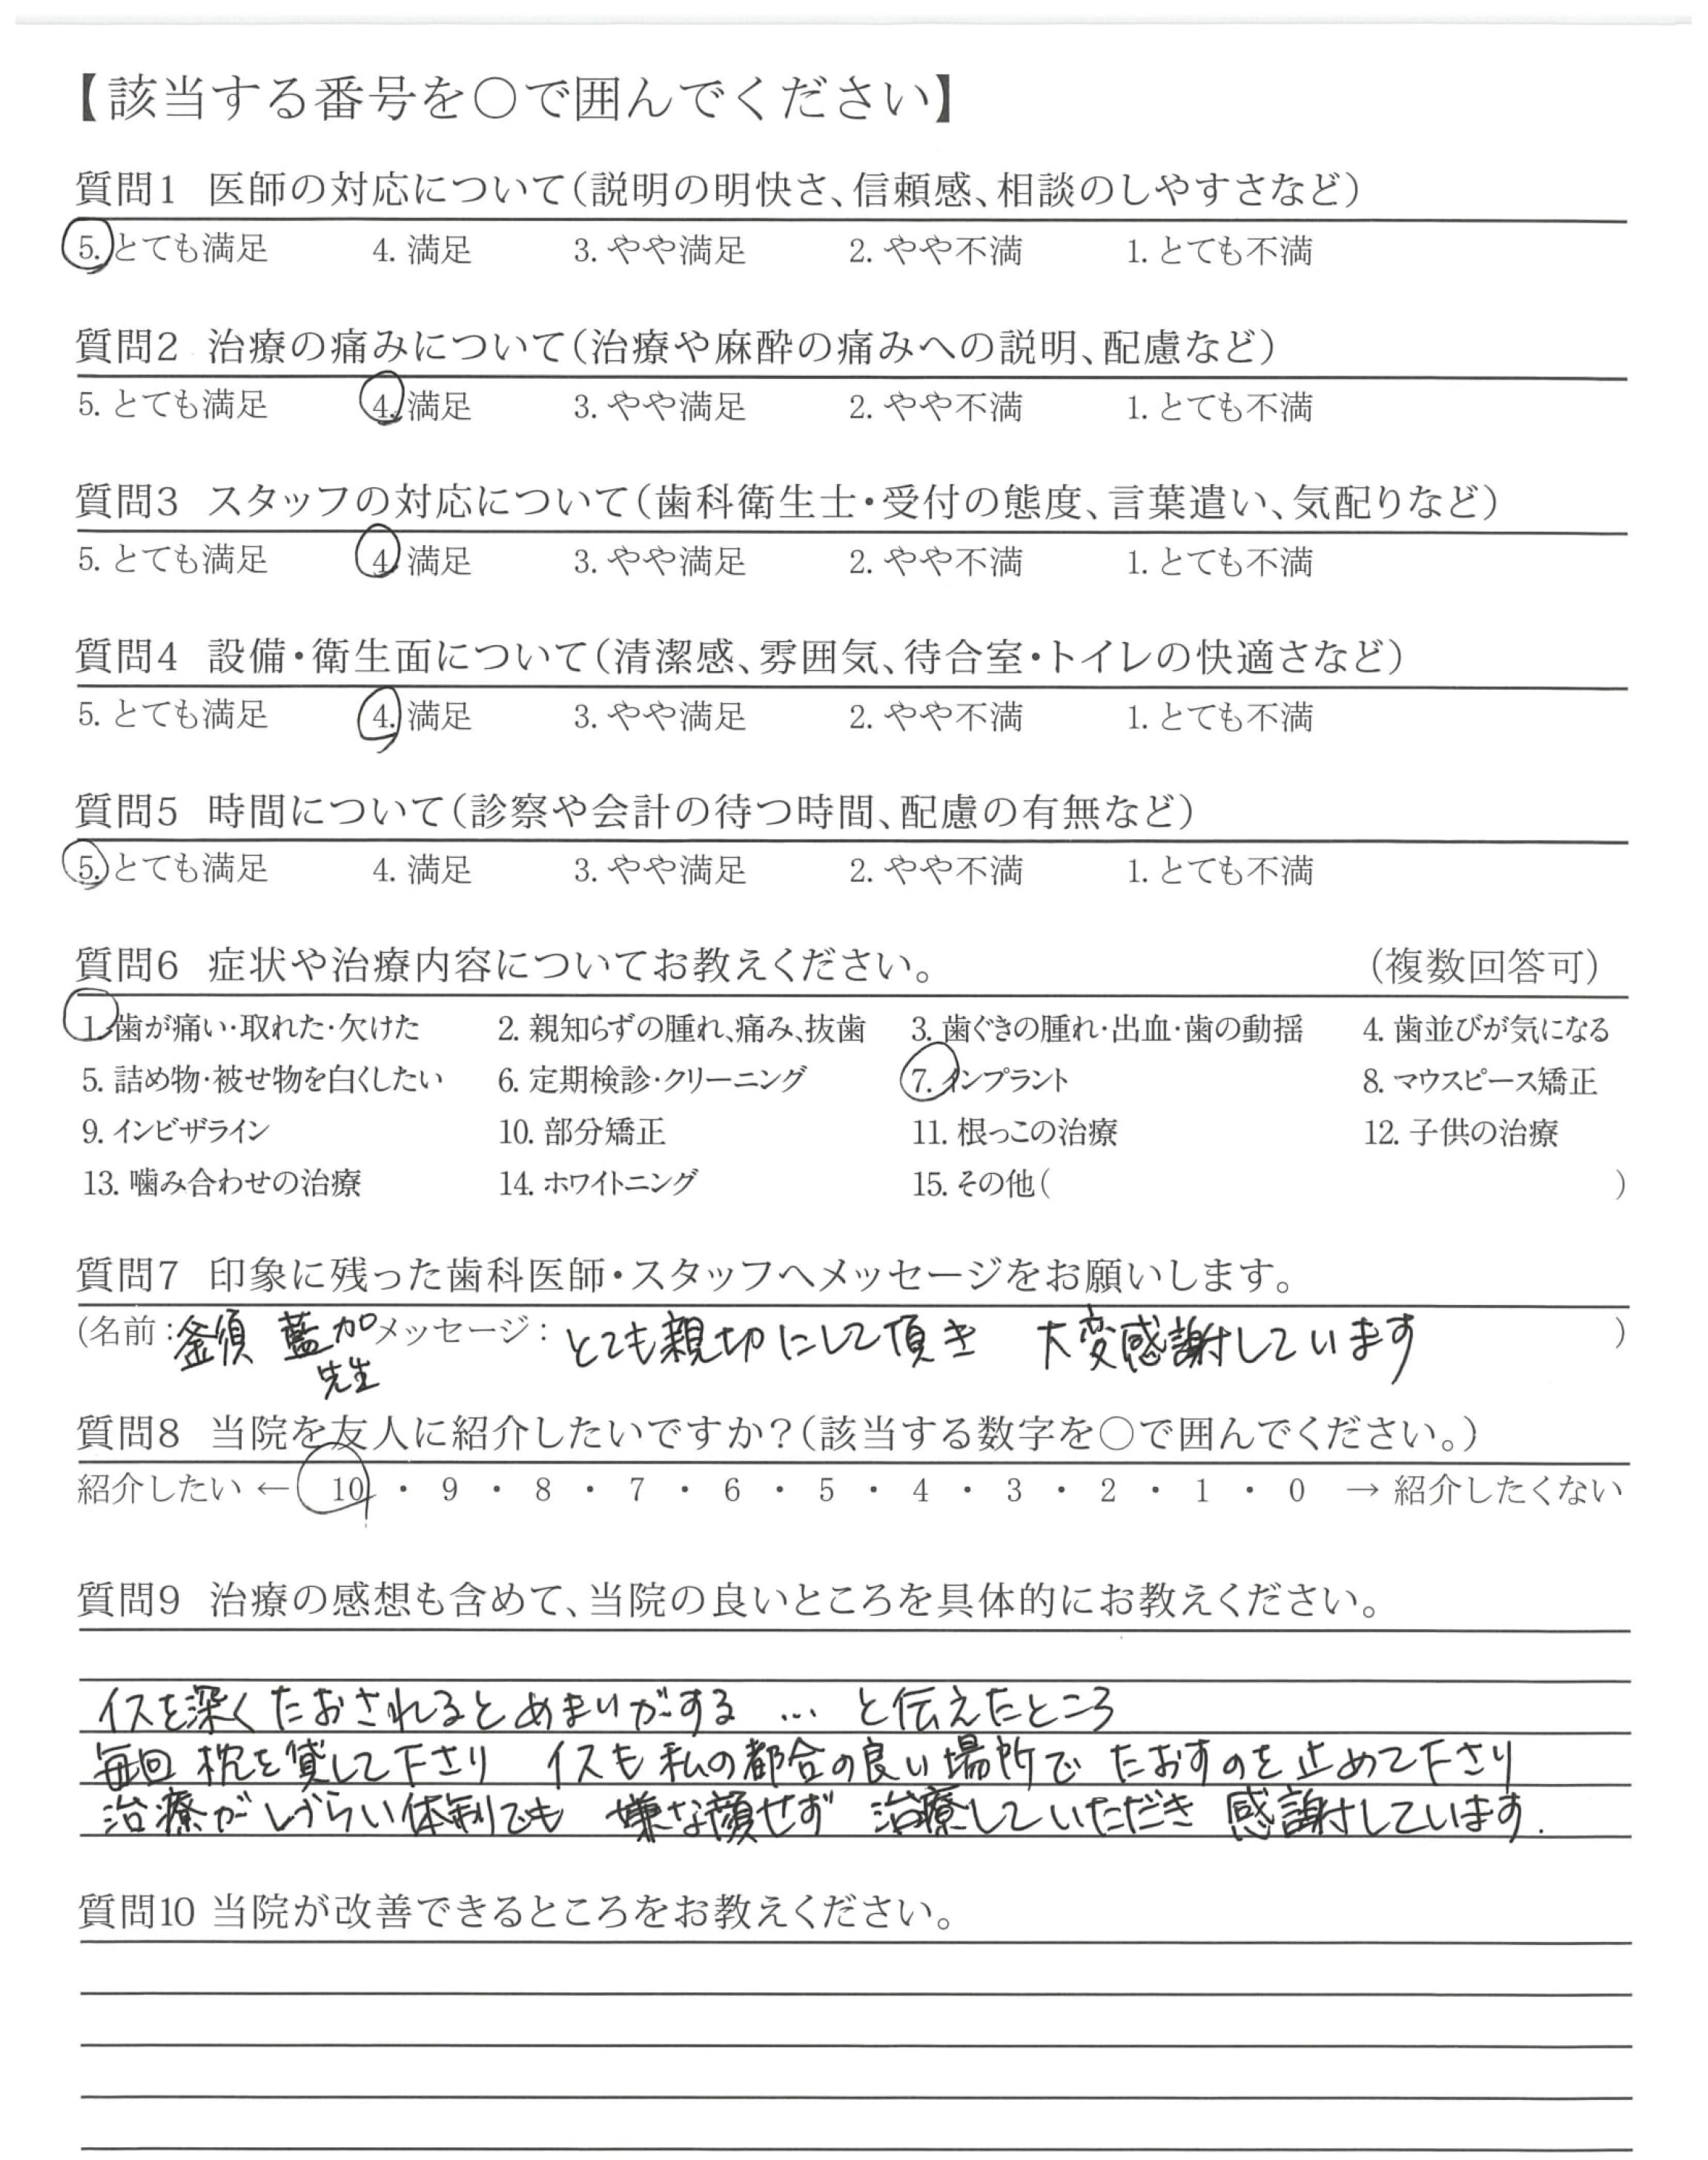 【該当する番号を○で囲んでください】
質問1 医師の対応について(説明の明快さ、信頼感、相談のしやすさなど)
5. とても満足 4. 満足 3. やや満足 2. やや不満 1. とても不満
質問2 治療の痛みについて(治療や麻酔の痛みへの説明、配慮など)
5. とても満足 4. 満足 3. やや満足 2. やや不満 1. とても不満
質問3 スタッフの対応について(歯科衛生士・受付の態度、言葉遣い、気配りなど)
5. とても満足 4. 満足 3. やや満足 2. やや不満 1. とても不満
質問4 設備・衛生面について(清潔感、雰囲気、待合室・トイレの快適さなど)
5. とても満足 4. 満足 3. やや満足 2. やや不満 1. とても不満
質問5 時間について(診察や会計の待つ時間、配慮の有無など)
5. とても満足 4. 満足 3. やや満足 2. やや不満 1. とても不満
質問6 症状や治療内容についてお教えください。 (複数回答可)
1. 歯が痛い・取れた・欠けた 2. 親知らずの腫れ、痛み、抜歯 3. 歯ぐきの腫れ・出血・歯の動揺 4. 歯並びが気になる
5. 詰め物・被せ物を白くしたい 6. 定期検診・クリーニング 7. インプラント 8. マウスピース矯正
9. インビザライン 10. 部分矯正 11. 根っこの治療 12. 子供の治療
13. 噛み合わせの治療 14. ホワイトニング 15. その他( )
質問7 印象に残った歯科医師・スタッフへメッセージをお願いします。
(名前:釜須 藍加 メッセージ:とても親切にして頂き 大変感謝しています )
先生
質問8 当院を友人に紹介したいですか?(該当する数字を○で囲んでください。)
紹介したい ← 10 ・ 9 ・ 8 ・ 7 ・ 6 ・ 5 ・ 4 ・ 3 ・ 2 ・ 1 ・ 0 → 紹介したくない
質問9 治療の感想も含めて、当院の良いところを具体的にお教えください。
イスを深くたおされるとめまいがする … と伝えたところ
毎回 枕を貸して下さり イスも私の都合の良い場所で たおすのを止めて下さり
治療がしづらい体制でも 嫌な顔せず 治療していただき 感謝しています.
質問10 当院が改善できるところをお教えください。